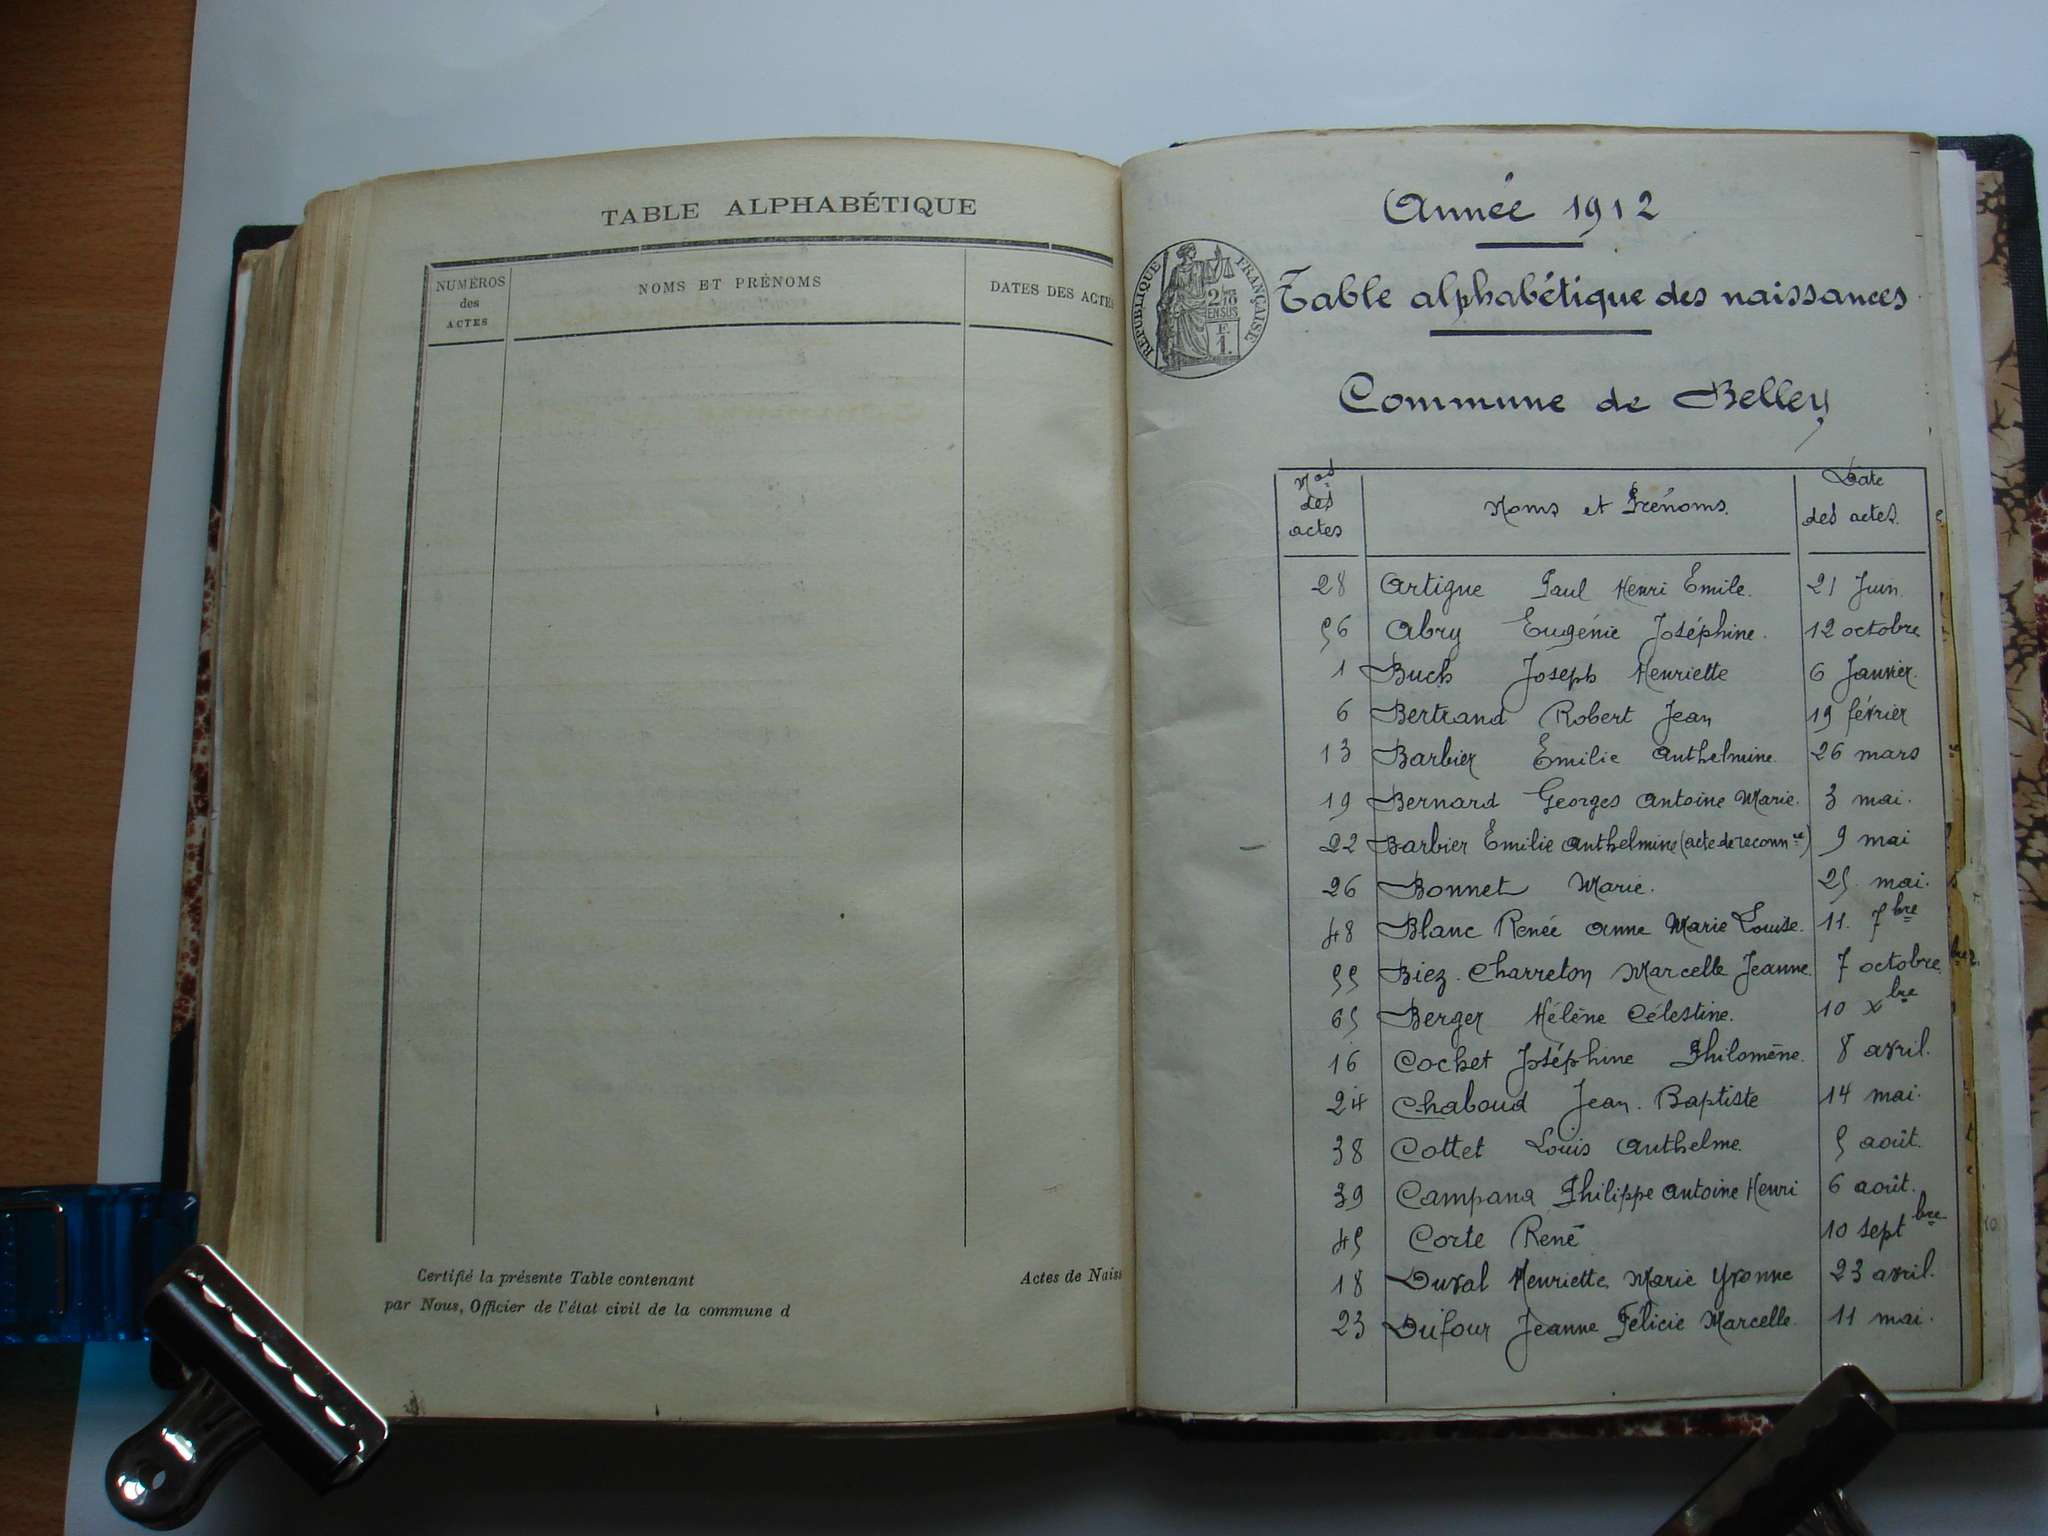 TABLE ALPHABÉTIQUE
NUMÉROS
des
ACTES
NOMS ET PRÉNOMS
DATES DES ACTES
Certifié la présente Table contenant
Actes de Naiss
par Nous, Officier de l'état civil de la commune d
Année 1912
RÉPUBLIQUE FRANÇAISE
2/10
EN SUS
F.
1.
Table alphabétique des naissances
Commune de Belley
Nos
des
actes
Noms et Prénoms.
Date
des actes.
28 Artigue Paul Henri Emile. 21 Juin.
56 Abry Eugénie Joséphine. 12 octobre
1 Buch Joseph Henriette 6 Janvier.
6 Bertrand Robert Jean 19 février
13 Barbier Emilie Anthelmine. 26 mars
19 Bernard Georges Antoine Marie. 3 mai.
22 Barbier Emilie Anthelmine (acte de reconnce) 9 mai
26 Bonnet Marie. 25 mai.
48 Blanc Renée Anne Marie Louise. 11. 7bre
55 Biez. Charreton Marcelle Jeanne 7 octobre.
65 Berger Hélène Célestine. 10 Xbre
16 Cochet Joséphine Philomène. 8 avril.
24 Chaboud Jean. Baptiste 14 mai.
38 Cottet Louis Anthelme. 5 août.
39 Campana Philippe Antoine Henri 6 août.
45 Corte René 10 septbre
18 Duval Henriette Marie Yvonne 23 avril.
23 Dufour Jeanne Félicie Marcelle. 11 mai.